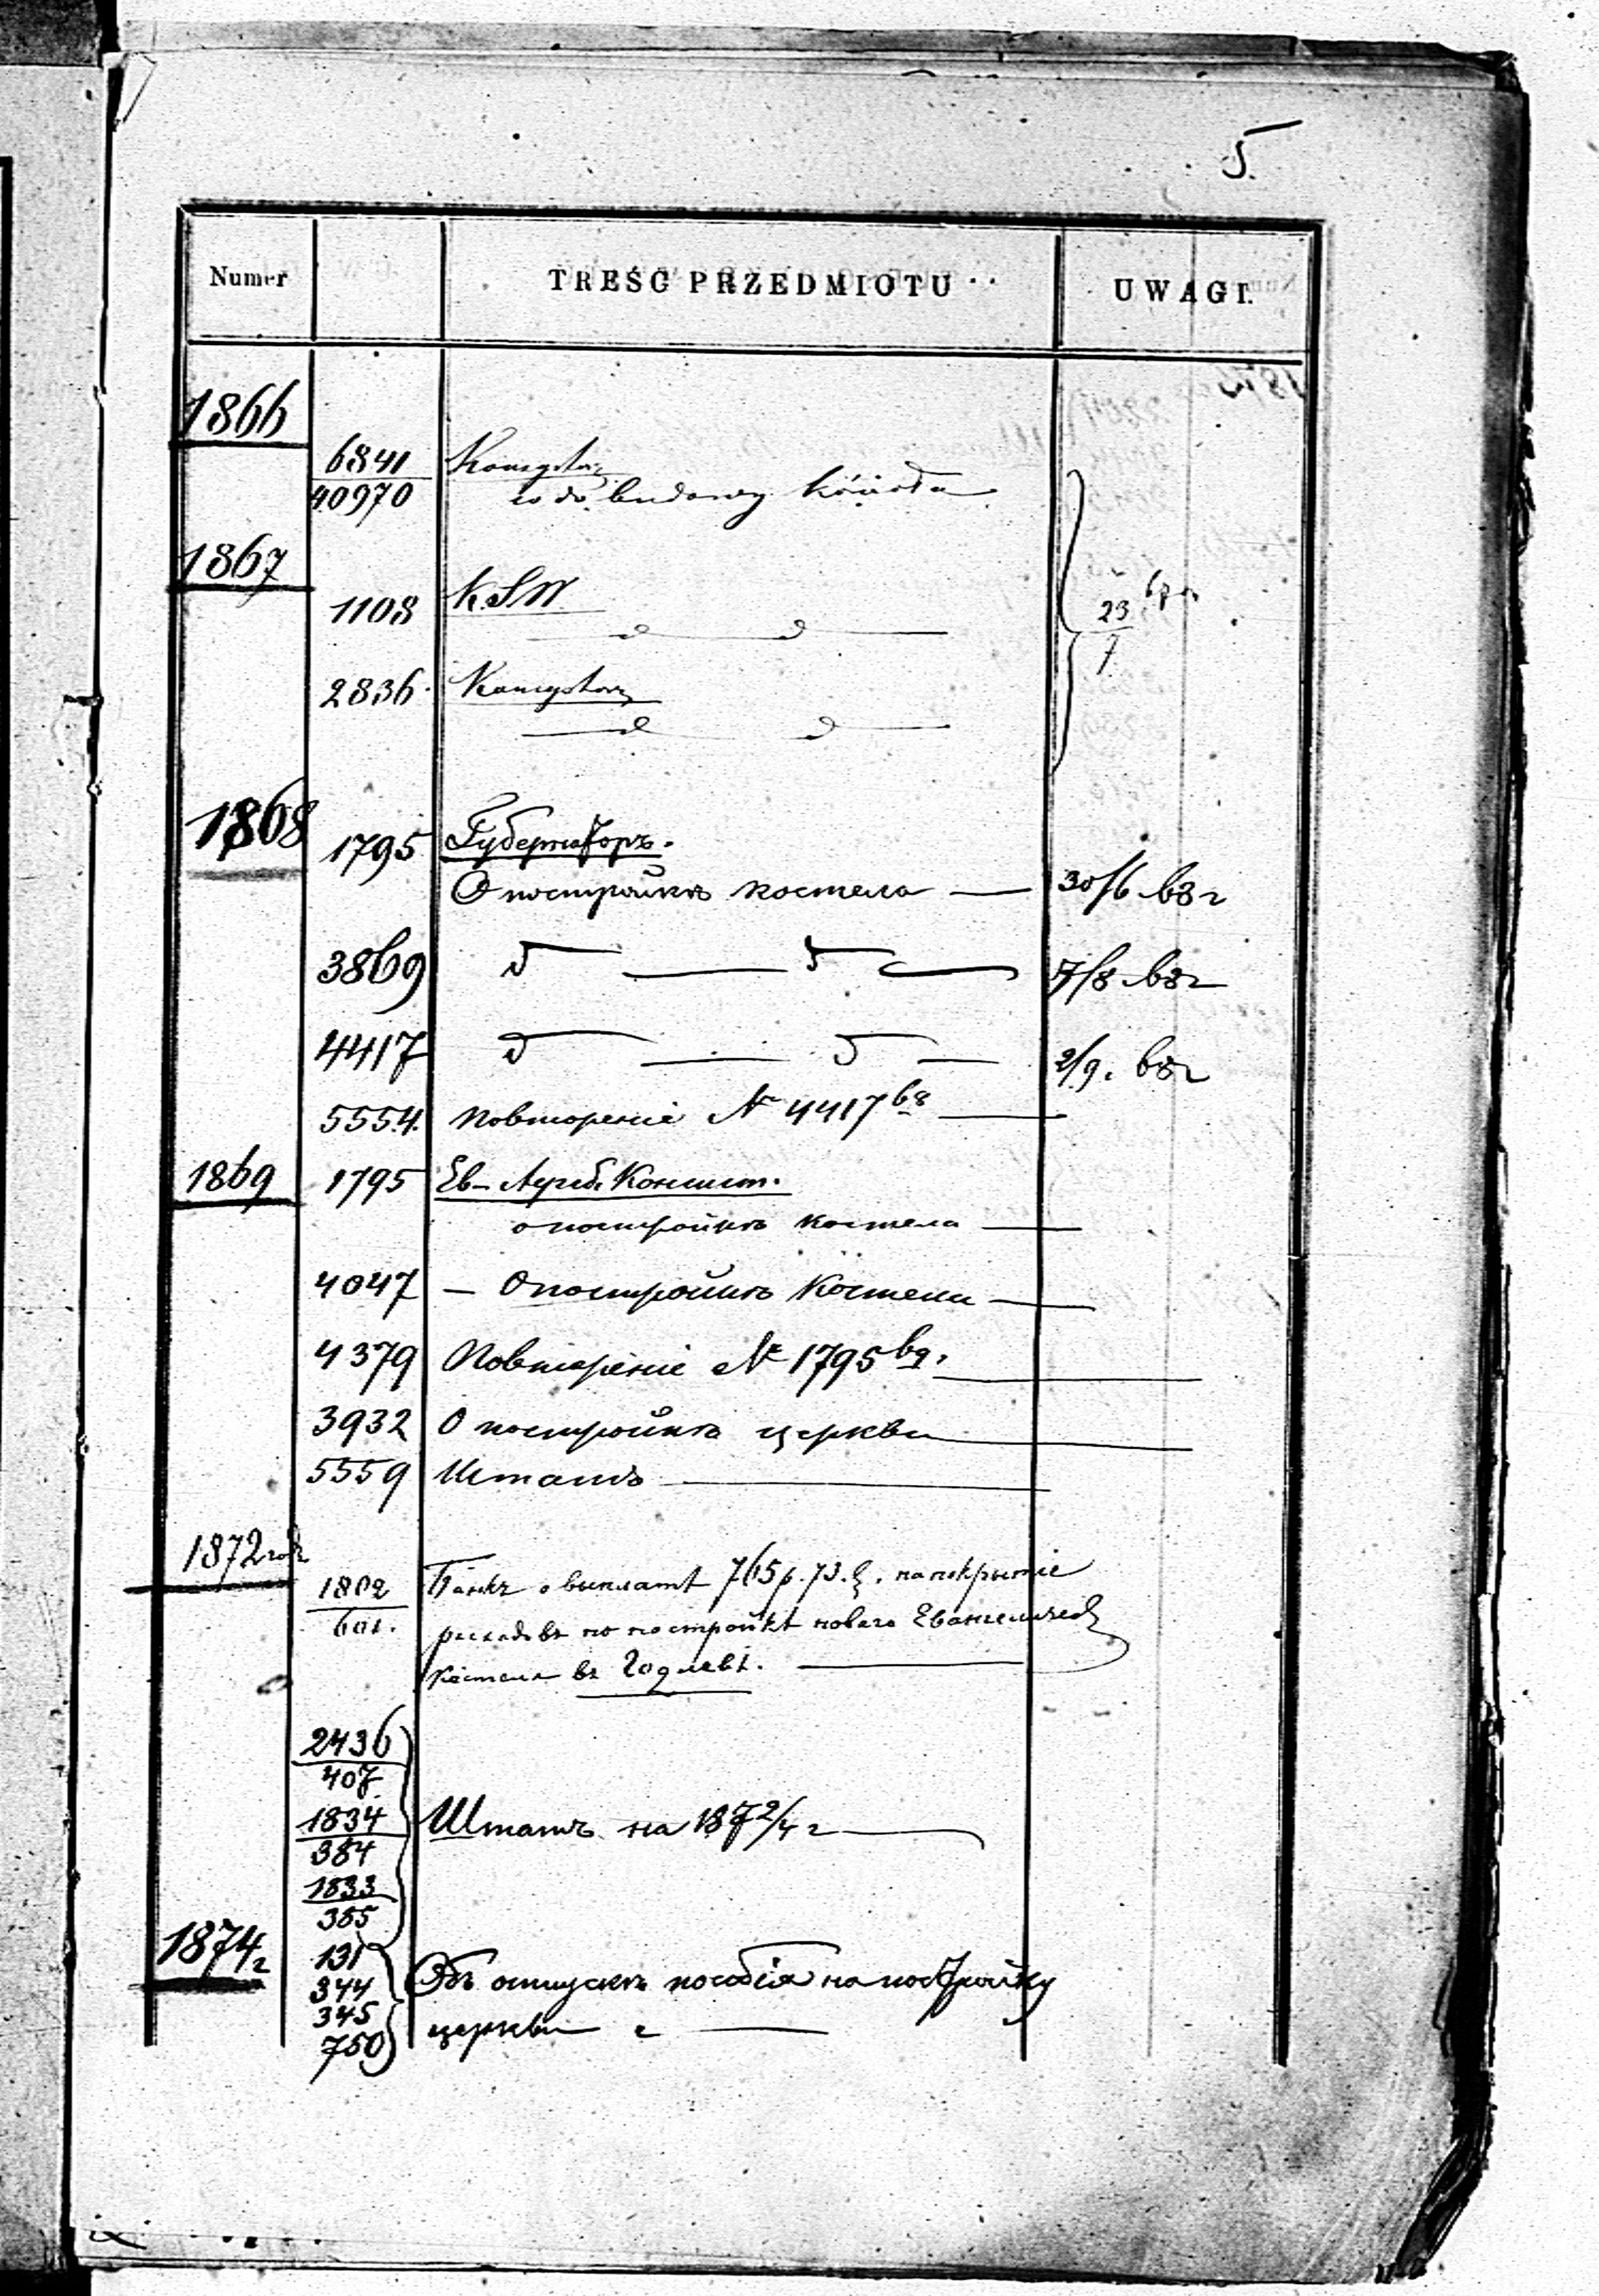 5.
Numer TREŚĆ PRZEDMIOTU UWAGI.
1866
6841 Konsystorz
40970 co do budowy kościoła
1867
1108 K.S.W.
d d
23/7 67
2836 Konsystorz
d d
1868
1795 Губернаторъ.
О постройкѣ костела — 30/6 68 г
3869 d — d — 7/8 68 г
4417 d — d — 2/9 68 г
5554. Повтореніе № 4417 68 —
1869 1795 Ев-Аугсб. Консист.
о постройкѣ костела —
4047 — О постройкѣ костела —
4379 Повтореніе № 1795 69. —
3932 О постройкѣ церкви —
5559 Штатъ —
1872 года
1802 Банкъ о выплатѣ 765 р. 73. к. на покрытіе
601. расходовъ по постройкѣ новаго Евангелическ
костела въ Годлевѣ. —
2436
407
1834 Штатъ на 1872/4 г —
384
1833
385
1874 г
131
344 Объ отпускѣ пособія на постройку
345 церкви —
750